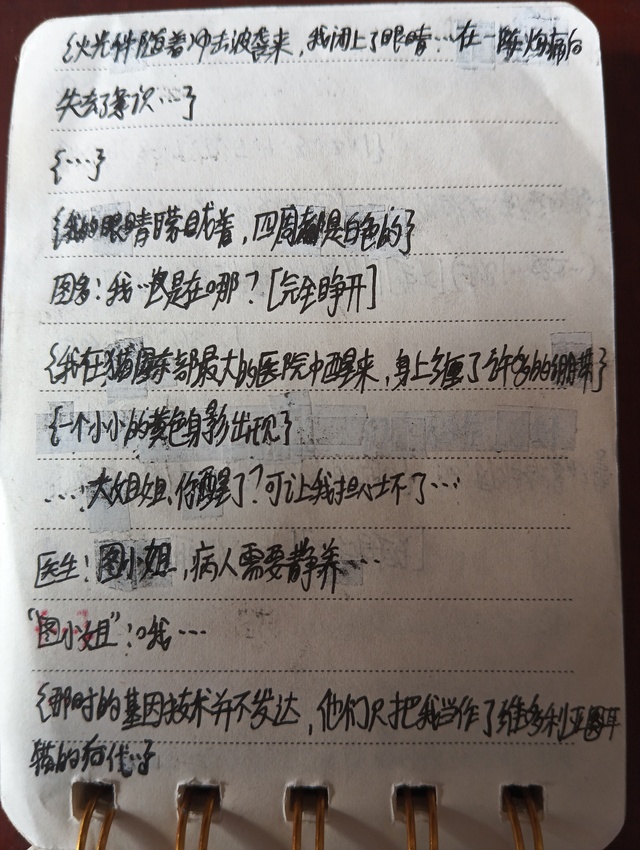 {火光伴随着冲击波袭来,我闭上了眼睛…在一阵灼痛后
失去了意识…}
{…}
{我的眼睛曚昽着,四周都是白色的}
图多:我…这是在哪?[完全睁开]
{我在猫国东部最大的医院中醒来,身上缠了许多的绷带}
{一个小小的黄色身影出现}
…:大姐姐,你醒了?可让我担心坏了…
医生:图小姐,病人需要静养…
“图小姐”:哦…
{那时的基因技术并不发达,他们只把我当作了维多利亚圆耳
猫的后代…}